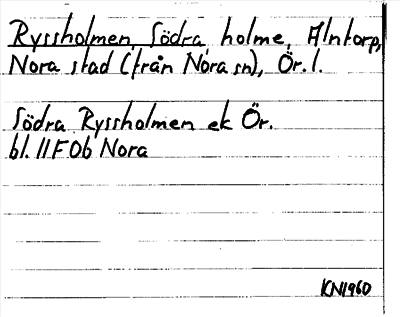 Ryssholmen, Södra, holme, Alntorp,
Nora stad (från Nora sn), Ör. l.
Södra Ryssholmen ek Ör.
bl. 11F0b Nora
KN1960